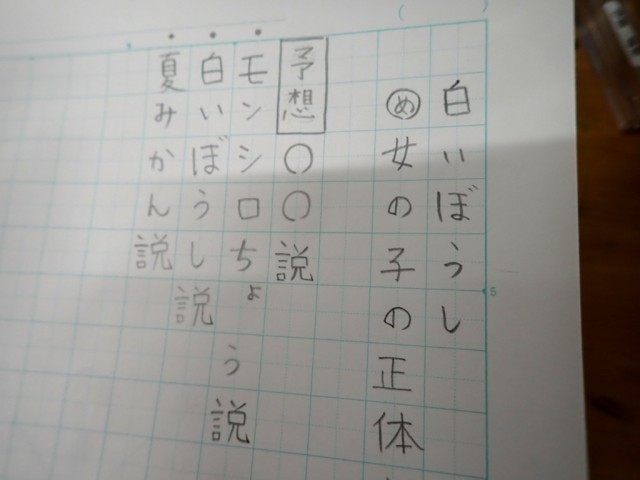 白いぼうし
め女の子の正体
予想〇〇説
・モンシロちょう説
・白いぼうし説
・夏みかん説
5